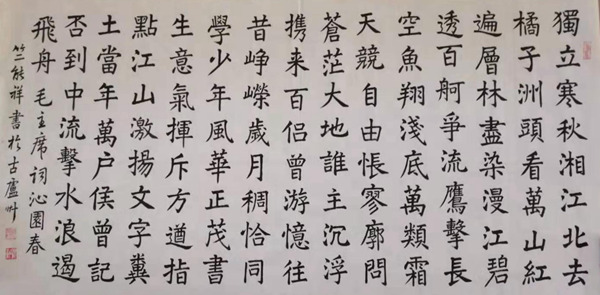 獨立寒秋湘江北去
橘子洲頭看萬山紅
遍層林盡染漫江碧
透百舸爭流鷹擊長
空魚翔淺底萬類霜
天競自由悵寥廓問
蒼茫大地誰主沉浮
携来百侣曾游憶往
昔崢嶸歲月稠恰同
學少年風華正茂書
生意氣揮斥方遒指
點江山激揚文字糞
土當年萬户侯曾記
否到中流擊水浪遏
飛舟 毛主席詞沁園春
竺能祥書於古廬